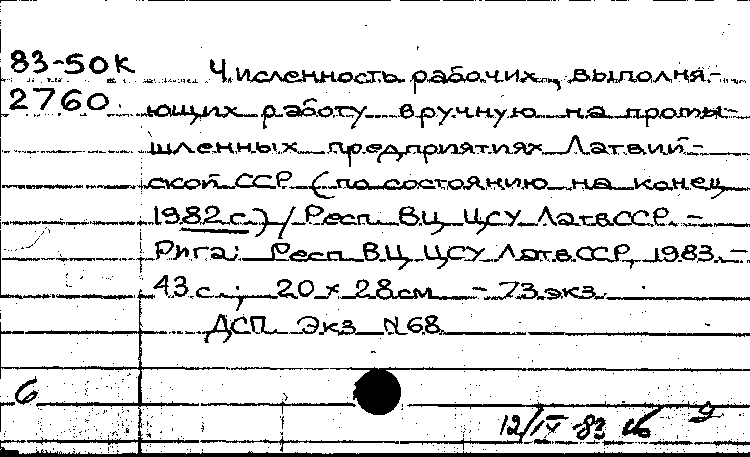 83-50К Численность рабочих, выполня-
2760 ющих работу вручную на промы-
шленных предприятиях Латвий-
ской ССР (по состоянию на конец
1982 г.) / Респ. ВЦ ЦСУ ЛатвССР. –
Рига: Респ ВЦ ЦСУ ЛатвССР, 1983. –
43 с.; 20 × 28 см. – 73 экз.
ДСП. Экз N 68
6
12/IV-83